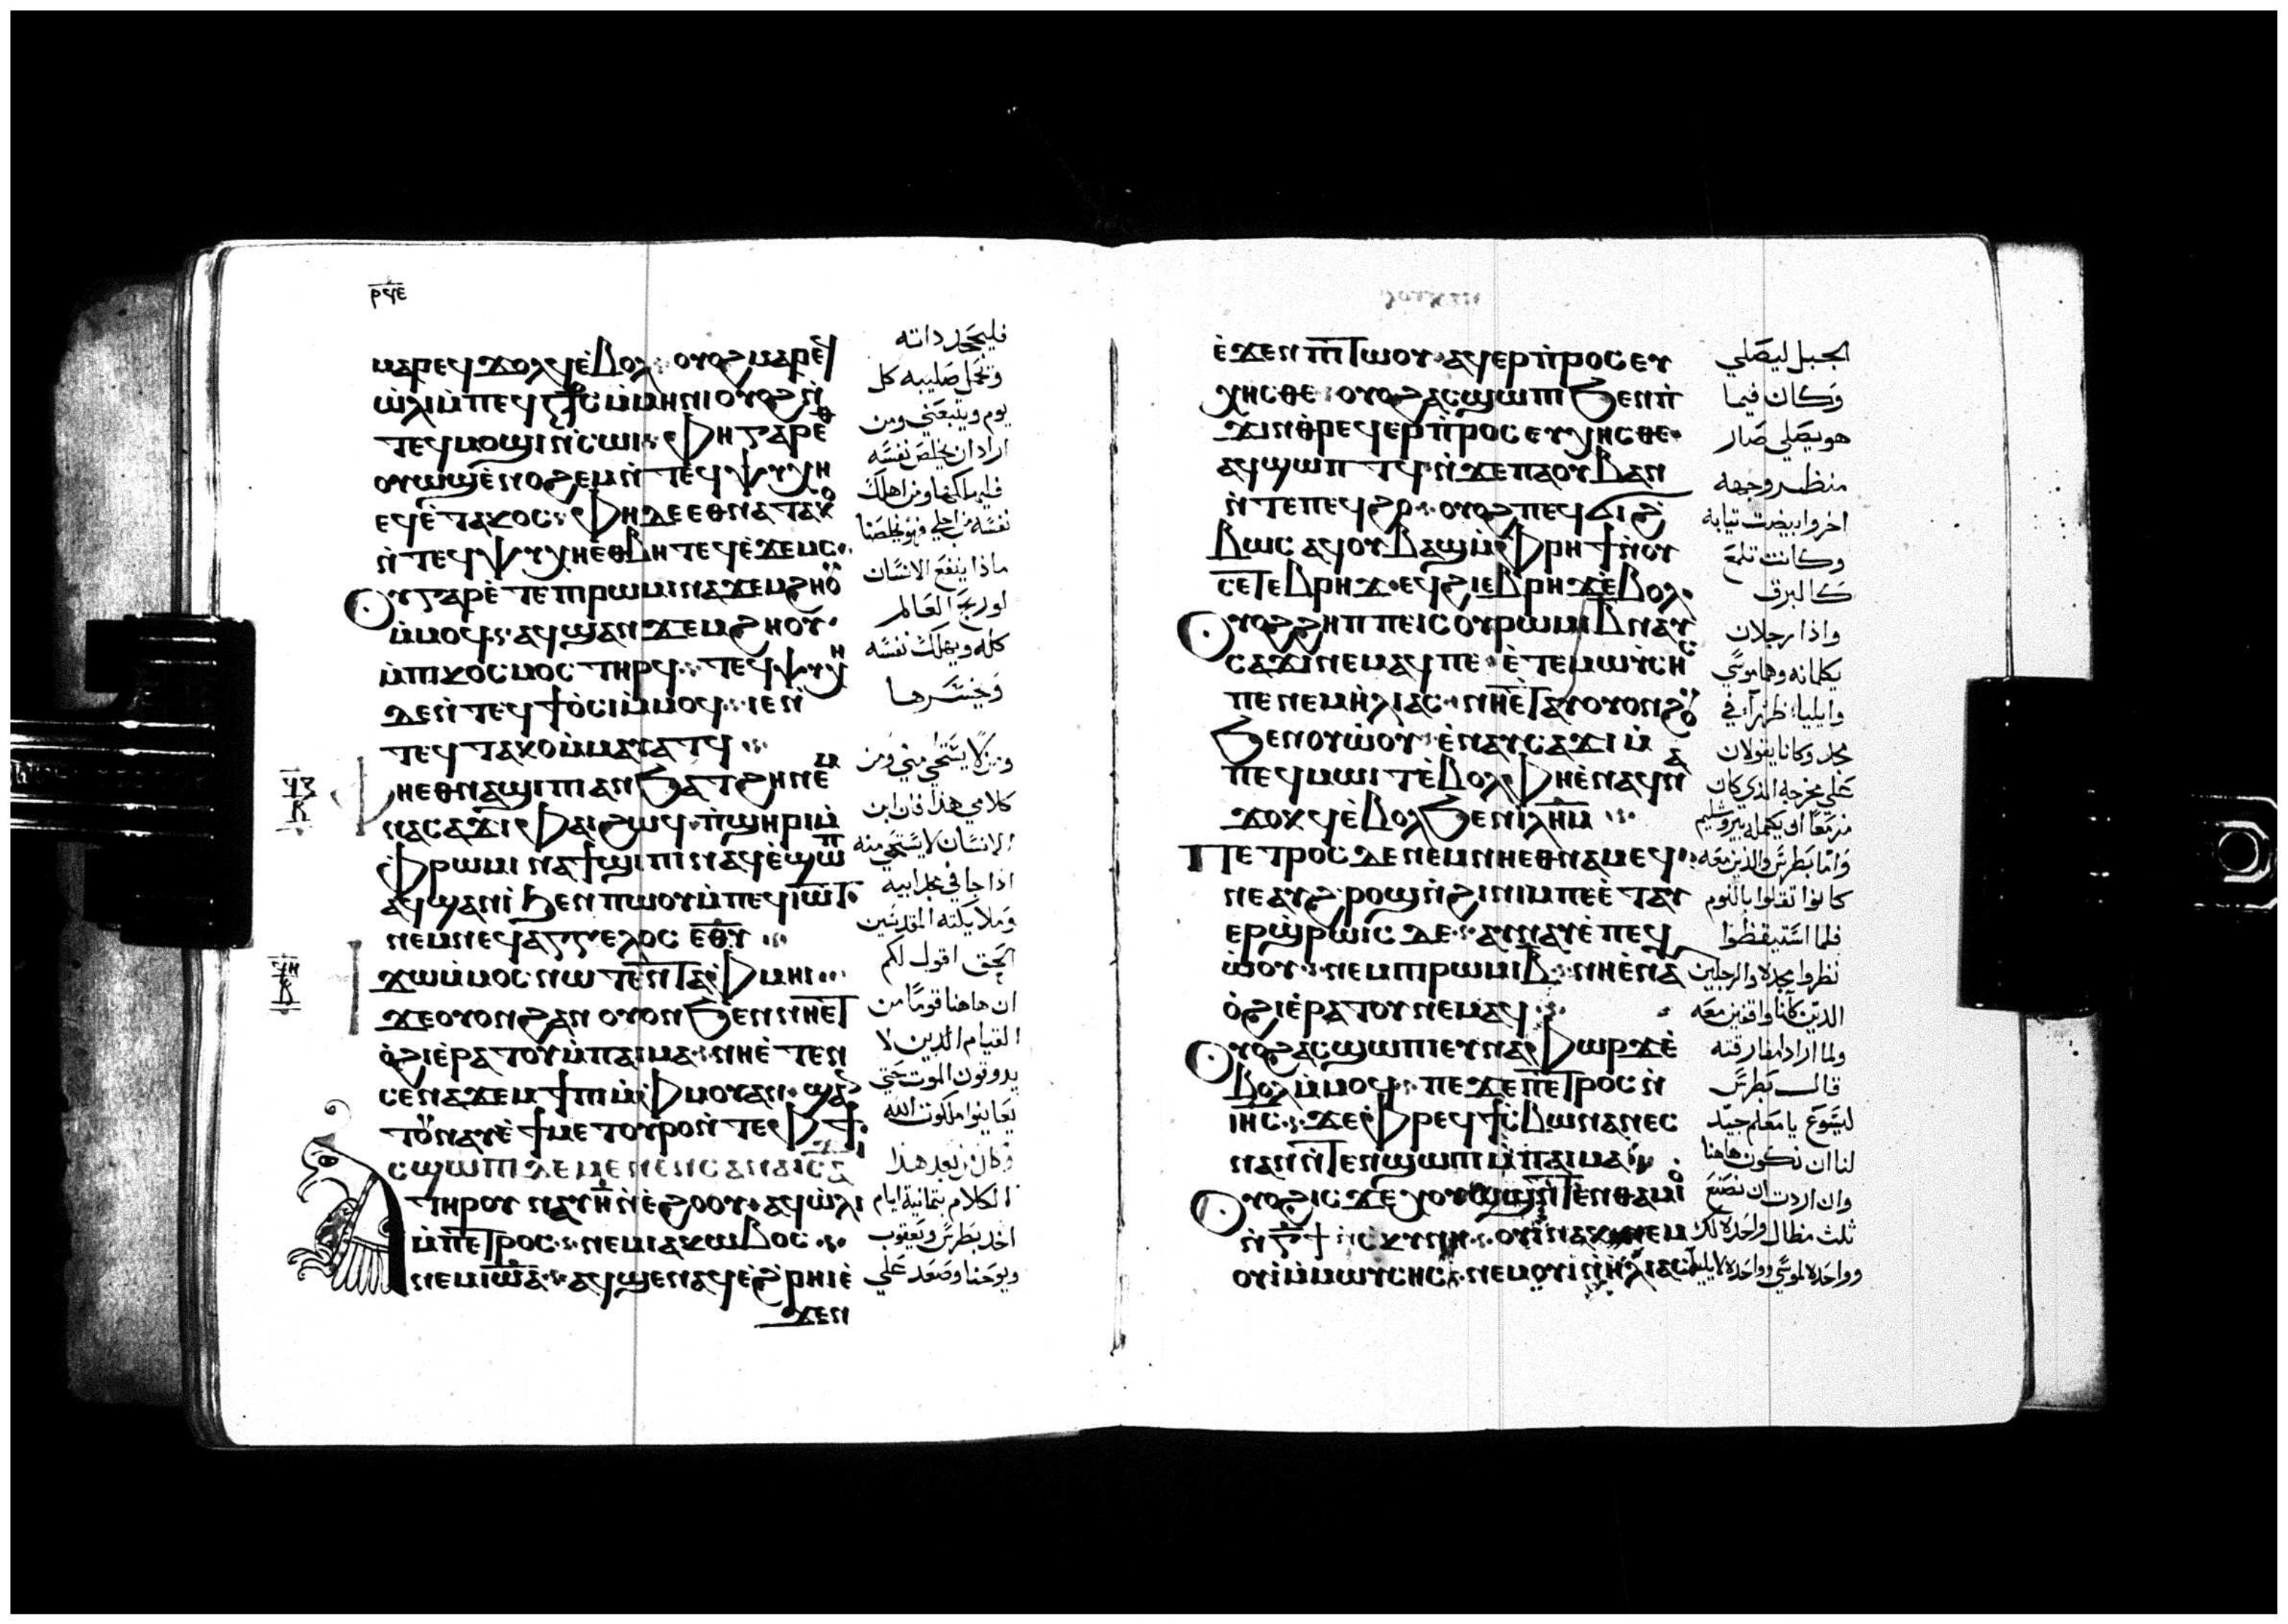 ⲣϥⲉ
ⲙⲁⲣⲉϥϫⲟⲗϥ ⲉ̀ⲃⲟⲗ ⲟⲩⲟϩ ⲙⲁⲣⲉϥ
ⲱ̀ⲗⲓ ⲙ̀ⲡⲉϥ ⲙ̀ⲙⲏⲛⲓ ⲟⲩⲟϩ ⲛ̀
ⲧⲉϥⲙⲟϣⲓ ⲛ̀ⲥⲱⲓ ⲫⲏ ⲅⲁⲣ ⲉⲑ
ⲟⲩⲱϣ ⲉ̀ⲛⲟϩⲉⲙ ⲛ̀ⲧⲉϥⲯⲩⲭⲏ
ⲉϥⲉ̀ⲧⲁⲕⲟⲥ ⲫⲏ ⲇⲉ ⲉⲑⲛⲁⲧⲁⲕⲟ
ⲛ̀ⲧⲉϥⲯⲩⲭⲏ ⲉⲑⲃⲏⲧ ⲉϥⲉ̀ϫⲉⲙⲥ
ⲟⲩ ⲅⲁⲣ ⲉ̀ⲧⲉ ⲡⲓⲣⲱⲙⲓ ⲛⲁϫⲉⲙϩⲏⲟⲩ
ⲙ̀ⲙⲟϥ ⲁϥϣⲁⲛϫⲉⲙϩⲏⲟⲩ
ⲙ̀ⲡⲓⲕⲟⲥⲙⲟⲥ ⲧⲏⲣϥ ⲧⲉϥⲯⲩⲭⲏ
ⲇⲉ ⲛ̀ⲧⲉϥϯⲟ̀ⲥⲓ ⲙ̀ⲙⲟϥ ⲓⲉ ⲛ̀
ⲧⲉϥⲧⲁⲕⲟ ⲙ̀ⲙⲁⲩⲁⲧϥ
ⲫⲏ ⲉⲑⲛⲁϣⲓⲡⲓ ⲁⲛ ϧⲁⲧϩⲏ ⲛⲉⲙ
ⲛⲁⲥⲁϫⲓ ⲫⲁⲓ ϩⲱϥ ⲡ̀ϣⲏⲣⲓ ⲙ̀
ⲫⲣⲱⲙⲓ ⲛⲁϯϣⲓⲡⲓ ⲛⲁϥ ⲉ̀ϣⲱⲡ
ⲁϥϣⲁⲛⲓ̀ ϧⲉⲛ ⲡⲱⲟⲩ ⲙ̀ⲡⲉϥⲓⲱⲧ
ⲛⲉⲙ ⲛⲉϥⲁⲅⲅⲉⲗⲟⲥ ⲉⲑⲩ
ϯϫⲱ ⲙ̀ⲙⲟⲥ ⲛⲱⲧⲉⲛ ⲧⲁⲫⲙⲏⲓ
ϫⲉ ⲟⲩⲟⲛ ϩⲁⲛ ⲟⲩⲟⲛ ϧⲉⲛ ⲛⲏⲉⲧ
ⲟ̀ϩⲓ ⲉ̀ⲣⲁⲧⲟⲩ ⲙ̀ⲡⲁⲓⲙⲁ ⲛⲏⲉ̀ⲧⲉⲛ
ⲥⲉⲛⲁϫⲉⲙϯⲡⲓ ⲙ̀ⲫⲙⲟⲩ ⲁⲛ ϣⲁ
ⲧⲟⲩⲛⲁⲩ ⲉ̀ϯⲙⲉⲧⲟⲩⲣⲟ ⲛ̀ⲧⲉ ⲫϯ
ⲁⲥϣⲱⲡⲓ ⲇⲉ ⲙⲉⲛⲉⲛⲥⲁ ⲛⲁⲓⲥⲁϫⲓ
ⲧⲏⲣⲟⲩ ⲛⲁⲩ ⲏ̅ ⲛ̀ⲉ̀ϩⲟⲟⲩ ⲁϥⲱ̀ⲗⲓ
ⲙ̀ⲡⲉⲧⲣⲟⲥ ⲛⲉⲙ ⲓⲁⲕⲱⲃⲟⲥ
ⲛⲉⲙ ⲓⲱⲁ ⲁϥϣⲉⲛⲁϥ ⲉ̀ϩⲣⲏⲓ ⲉ̀
ϫⲉⲛ
فليجحد داته
وتحمل صليبه كل
يوم ويتبعني ومن
اراد ان يخلص نفسه
فليهلكها ومن اهلك
نفسه من اجلي فهو يخلصها
ماذا ينفع الانسان
لو ربح العالم
كله ويهلك نفسه
وخسرها
ومن لا يستحي مني ومن
كلامي هذا فان ابن
الانسان لا يستحي منه
اذا جا في مجد ابيه
وملايكته المقدسين
الحق اقول لكم
ان هاهنا قومًا من
القيام الدين لا
يدوقون الموت حتي
يعاينوا ملكوت الله
وكان من بعد هدا
الكلام بثمانية ايام
اخد بطرس ويعقوب
ويوحنا وصعد علي
ϥⲍ
ⲕ
ϥⲏ
ⲉ̀ϫⲉⲛ ⲡⲓⲧⲱⲟⲩ ⲁϥⲉⲣⲡ̀ⲣⲟⲥⲉⲩ
ⲭⲏⲥⲑⲉ ⲟⲩⲟϩ ⲁⲥϣⲱⲡⲓ ϧⲉⲛ ⲡ̀
ϫⲓⲛⲑⲣⲉϥⲉⲣⲡ̀ⲣⲟⲥⲉⲩⲭⲏⲥⲑⲉ
ⲁϥϣⲱⲡⲓ ⲛ̀ϫⲉ ⲡⲁⲟⲩⲃⲁⲛ
ⲛ̀ⲧⲉ ⲡⲉϥϩⲟ ⲟⲩⲟϩ ⲡⲉϥ
ϩⲃⲱⲥ ⲁϥⲟⲩⲃⲁϣ ⲙ̀ⲫⲣⲏϯ ⲛ̀ⲟⲩ
ⲥⲉⲧⲉⲃⲣⲏϫ ⲉϥϩⲓⲉⲃⲣⲏϫ ⲉ̀ⲃⲟⲗ
ⲟⲩⲟϩ ϩⲏⲡⲡⲉ ⲓⲥ ⲟⲩⲣⲱⲙⲓ ⲃ ⲛⲁⲩ
ⲥⲁϫⲓ ⲛⲉⲙⲁϥ ⲡⲉ ⲉ̀ⲧⲉ ⲙⲱⲩⲥⲏⲥ
ⲡⲉ ⲛⲉⲙ ⲏ̀ⲗⲓⲁⲥ ⲛⲏⲉⲧⲁⲩⲟⲩⲟⲛϩⲟⲩ
ϧⲉⲛ ⲟⲩⲱ̀ⲟⲩ ⲉ̀ⲛⲁⲩⲥⲁϫⲓ ⲙ̀
ⲡⲉϥⲙⲱⲓⲧ ⲉ̀ⲃⲟⲗ ⲫⲏⲉ̀ⲛⲁϥⲛⲁ
ϫⲟⲕϥ ⲉ̀ⲃⲟⲗ ϧⲉⲛ ⲓⲗⲏⲙ
ⲡⲉⲧⲣⲟⲥ ⲇⲉ ⲛⲉⲙ ⲛⲏⲉⲑⲛⲁⲙⲉϥ
ⲛⲉⲁⲩϩⲣⲟϣ ⲛ̀ϩⲓⲛⲓⲙ ⲡⲉ ⲉ̀ⲧⲁⲩ
ⲉⲣϣⲣⲱⲓⲥ ⲇⲉ ⲁⲩⲛⲁⲩ ⲉ̀ⲡⲉϥ
ⲱ̀ⲟⲩ ⲛⲉⲙ ⲡⲓⲣⲱⲙⲓ ⲃ ⲛⲏⲉ̀ⲛⲁ
ⲟ̀ϩⲓ ⲉ̀ⲣⲁⲧⲟⲩ ⲛⲉⲙⲁϥ
ⲟⲩⲟϩ ⲁⲥϣⲱⲡⲓ ⲉⲩⲛⲁⲫⲱⲣϫ ⲉ̀
ⲃⲟⲗ ⲙ̀ⲙⲟϥ ⲡⲉϫⲉ ⲡⲉⲧⲣⲟⲥ ⲛ̀
ⲓⲏⲥ ϫⲉ ⲫⲣⲉϥϯⲥⲃⲱ ⲛⲁⲛⲉⲥ
ⲛⲁⲛ ⲛ̀ⲧⲉⲛϣⲱⲡⲓ ⲙ̀ⲡⲁⲓⲙⲁ
ⲟⲩⲟϩ ⲓⲥϫⲉ ⲭⲟⲩⲱϣ ⲛ̀ⲧⲉⲛⲑⲁⲙⲓⲟ
ⲛ̀ⲅϯ ⲛ̀ⲥⲕⲩⲛⲏ ⲟⲩⲓ ⲛⲁⲕ ⲛⲉⲙ
ⲟⲩⲓ ⲙ̀ⲙⲱⲩⲥⲏⲥ ⲛⲉⲙ ⲟⲩⲓ ⲛ̀ⲏⲗⲓⲁⲥ
الجبل ليصلي
وكان فيما
هو يصلي صار
منظر وجهه
اخر وابيضت تيابه
وكانت تلمع
كالبرق
واذا رجلان
يكلمانه وهما موسي
وايليا ظهرا في
مجد وكانا يقولان
علي مخرجه الذي كان
مزمعًا ان يكمله بيروشليم
واما بطرس والدين معه
كانوا تقلوا بالنوم
فلما استيقظوا
نظروا مجده والرجلين
الدين كانا واقفين معه
ولما ارادا مفارقته
قال بطرس
ليسوع يا معلم جيد
لنا ان نكون هاهنا
وان اردت ان نصنع
ثلث مظال واحده لك
وواحده لموسي وواحده لايليا